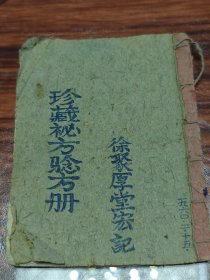 珍藏秘方验方册
徐聚厚堂宏记